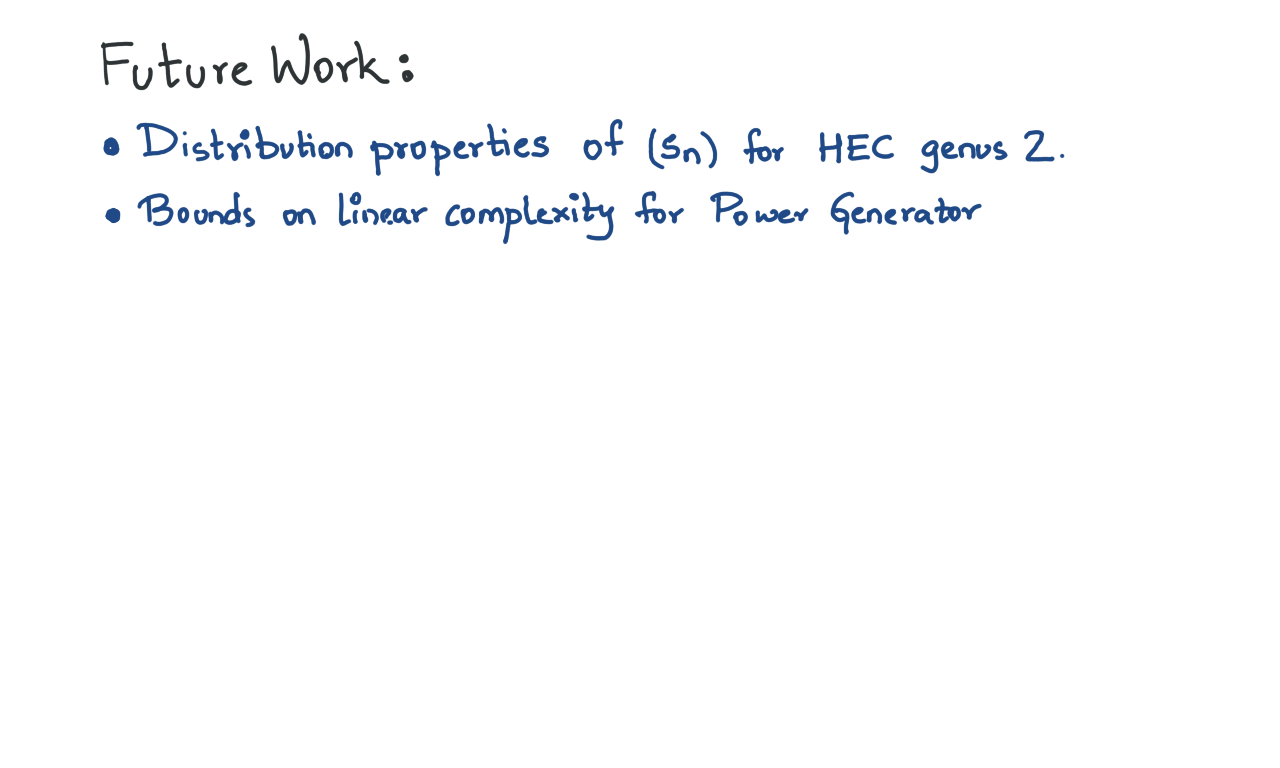 Future Work:
• Distribution properties of (Sn) for HEC genus 2.
• Bounds on linear complexity for Power Generator